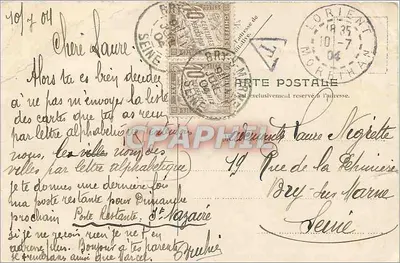 10/7 04
Chère Laure.
Alors tu es bien décidée
à ne pas m'envoyer la liste
des cartes que tu as reçu
par lettre alphabétique
nous, les villes nom des
villes par lettre alphabétique
je te donnes une dernière fois
ma poste restante pour Dimanche
prochain Poste Restante, St Nazaire
si je ne reçois rien je ne t'en
Bonjour à tes parents
CARTE POSTALE
exclusivement réservé à l'adresse.
Laure
19 Rue de la
Bry sur Marne
Seine
LORIENT
18 35
10 - 7
04
MORBIHAN
BRY-S-MARNE
SEINE
10
10
T
CPAPHIL.COM